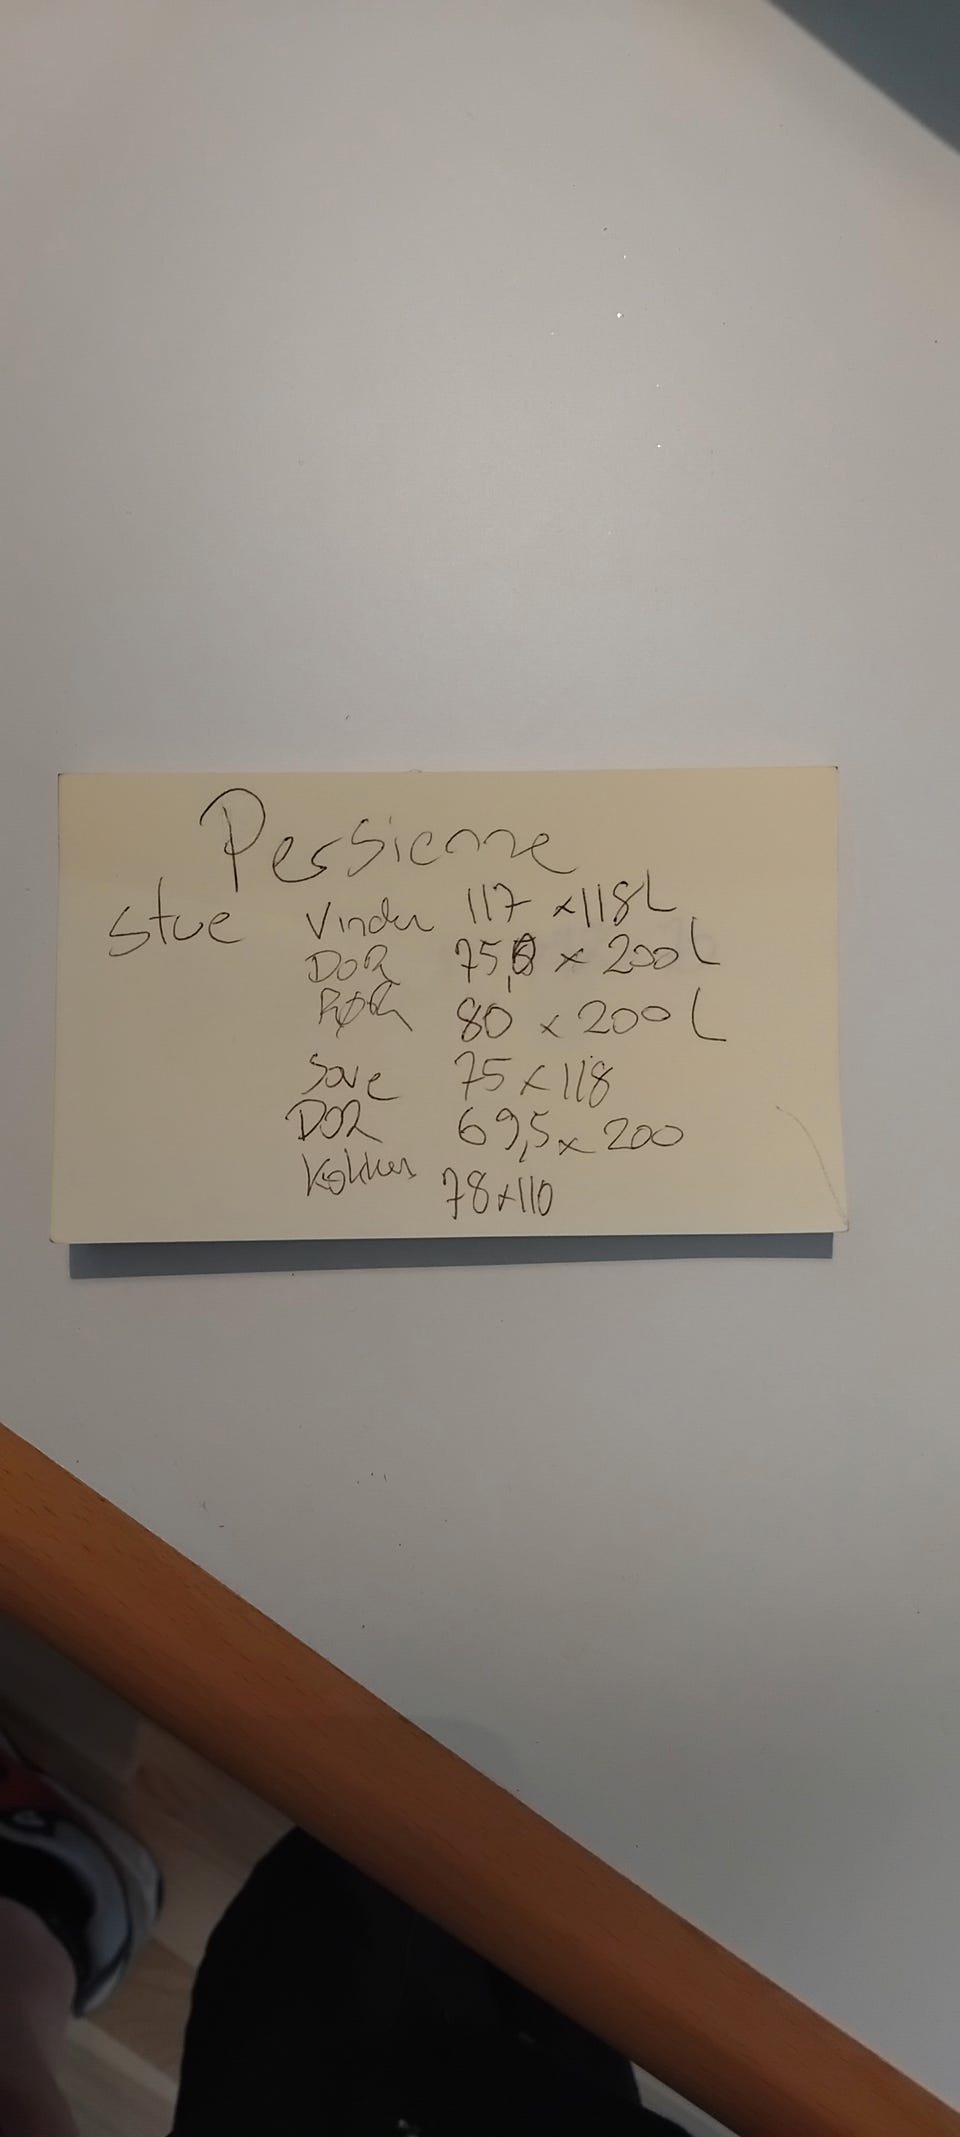 Persienne
stue Vindu 117 x118L
DOR 75, x 200 L
80 x 200 L
Sove 75 x 118
DOR 69,5 x 200
78 x 110